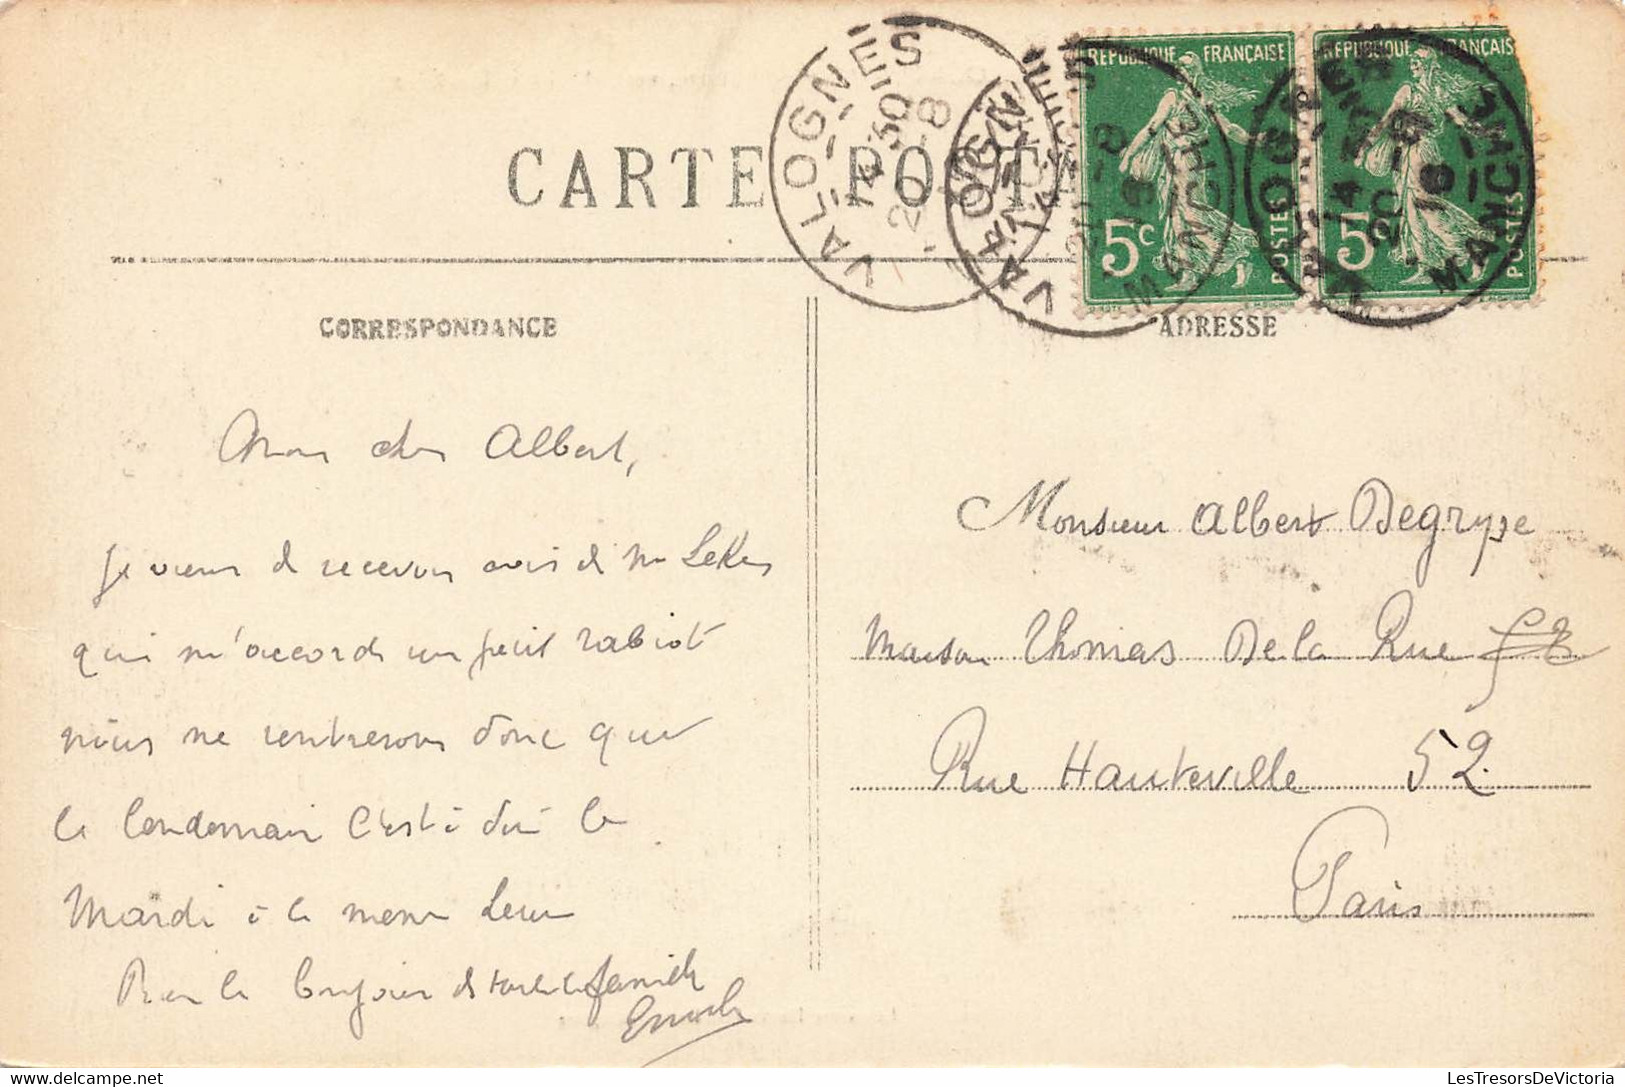 CARTE POSTALE
VALOGNES
14 30
20 -8
VALOGNES
20 -8
MANCHE
VALOGNES
14 30
20 -8
18
MANCHE
REPUBLIQUE FRANÇAISE
5c
POSTES
REPUBLIQUE FRANÇAISE
5
POSTES
CORRESPONDANCE
ADRESSE
Mon cher Albert,
Je viens de recevoir avis de Mr
qui m'accorde un petit rabiot
nous ne rentrerons donc que
le lendemain c'est à dire le
Mardi à la meme heure
Bien le bonjour de toute la famille
Monsieur Albert Degryse
Maison Thomas De la Rue
Rue Hauteville 52
Paris
LesTresorsDeVictoria